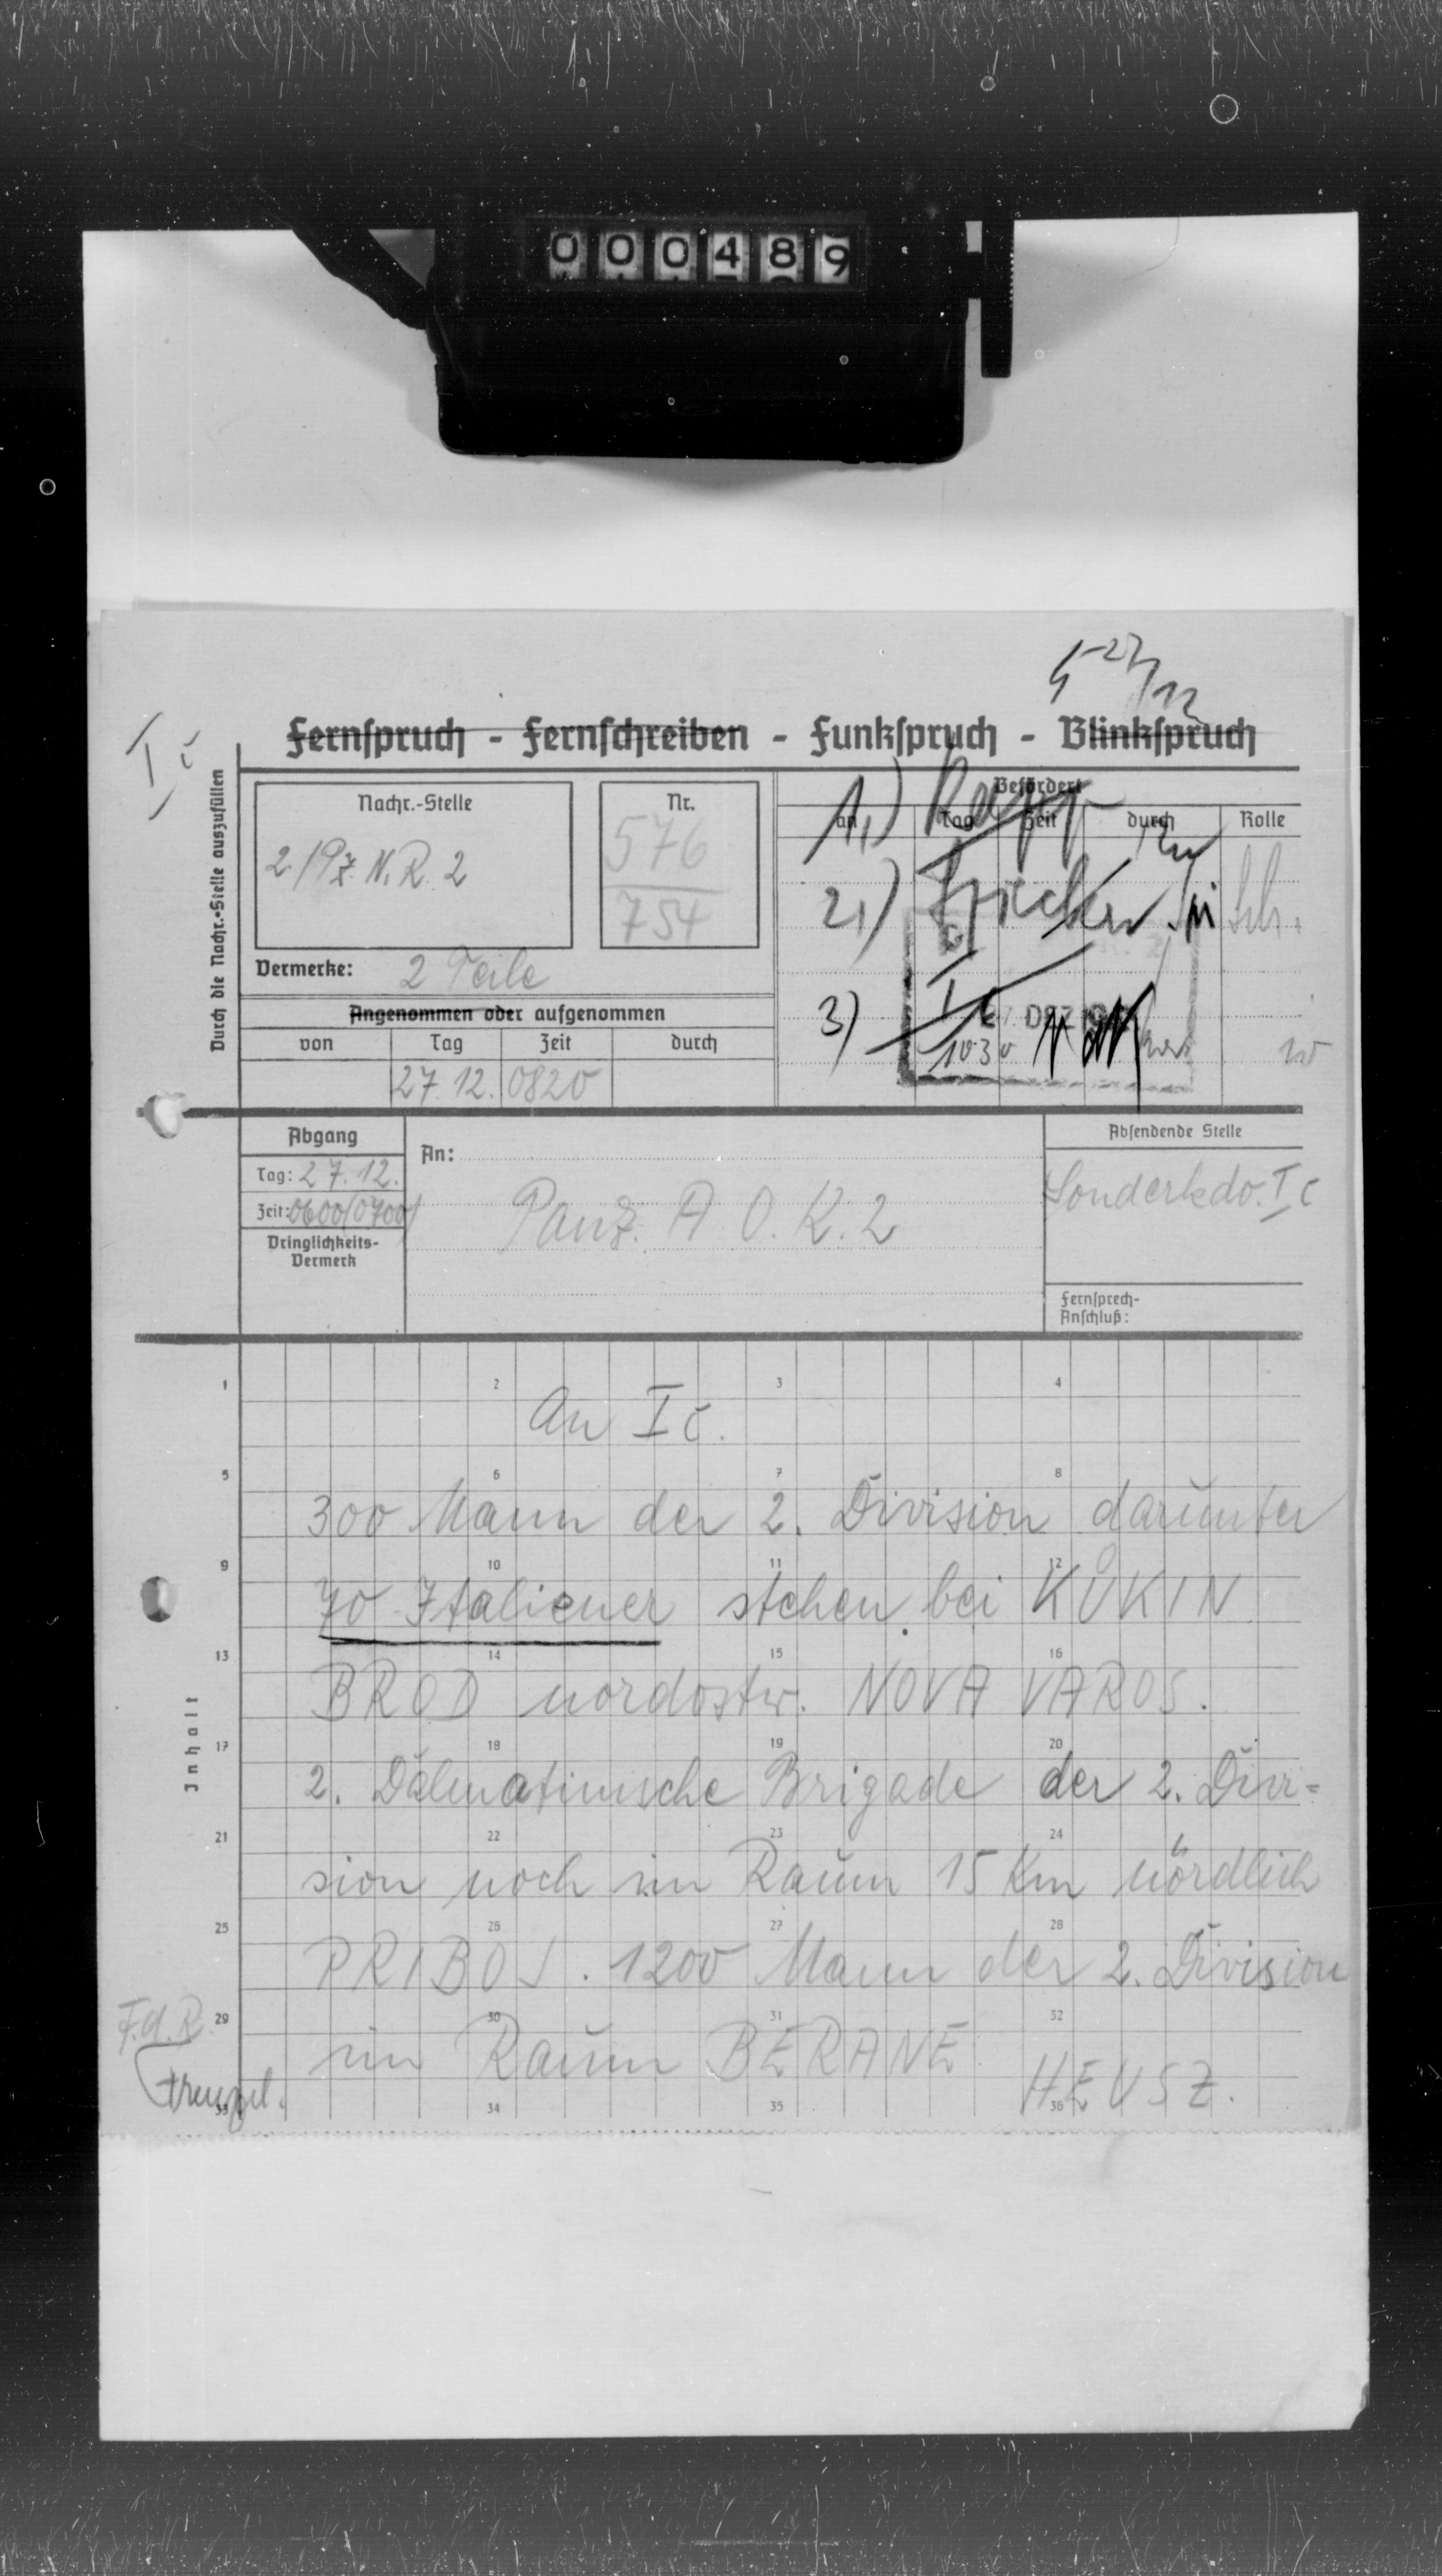 000489
27/12
I c
Fernspruch - Fernschreiben - Funkspruch - Blinkspruch
Durch die Nachr.-Stelle auszufüllen
Nachr.-Stelle
2/Pz. N. R. 2
Nr.
576
754
Befördert
an Tag Zeit durch Rolle
1.)
2.)
3)
DEZ
1030
Vermerke: 2 Teile
Angenommen oder aufgenommen
von Tag Zeit durch
27.12. 0820
Abgang
Tag: 27.12.
Zeit: 0600/0700/
Dringlichkeits-
Vermerk
An:
Panz. A. O. K. 2
Absendende Stelle
Sonderkdo. I c
Fernsprech-
Anschluß:
Inhalt
1 2 3 4
An I c.
5 6 7 8
300 Mann der 2. Division darunter
9 10 11 12
70 Italiener stehen bei KUKIN
13 14 15 16
BROD nordostw. NOVA VAROS.
17 18 19 20
2. Dalmatinische Brigade der 2. Divi=
21 22 23 24
sion noch im Raum 15 Km nördlich
25 26 27 28
PRIBOJ. 1200 Mann der 2. Division
29 30 31 32
im Raum BERANE.
HEUSZ.
F.d.R.
33 34 35 36